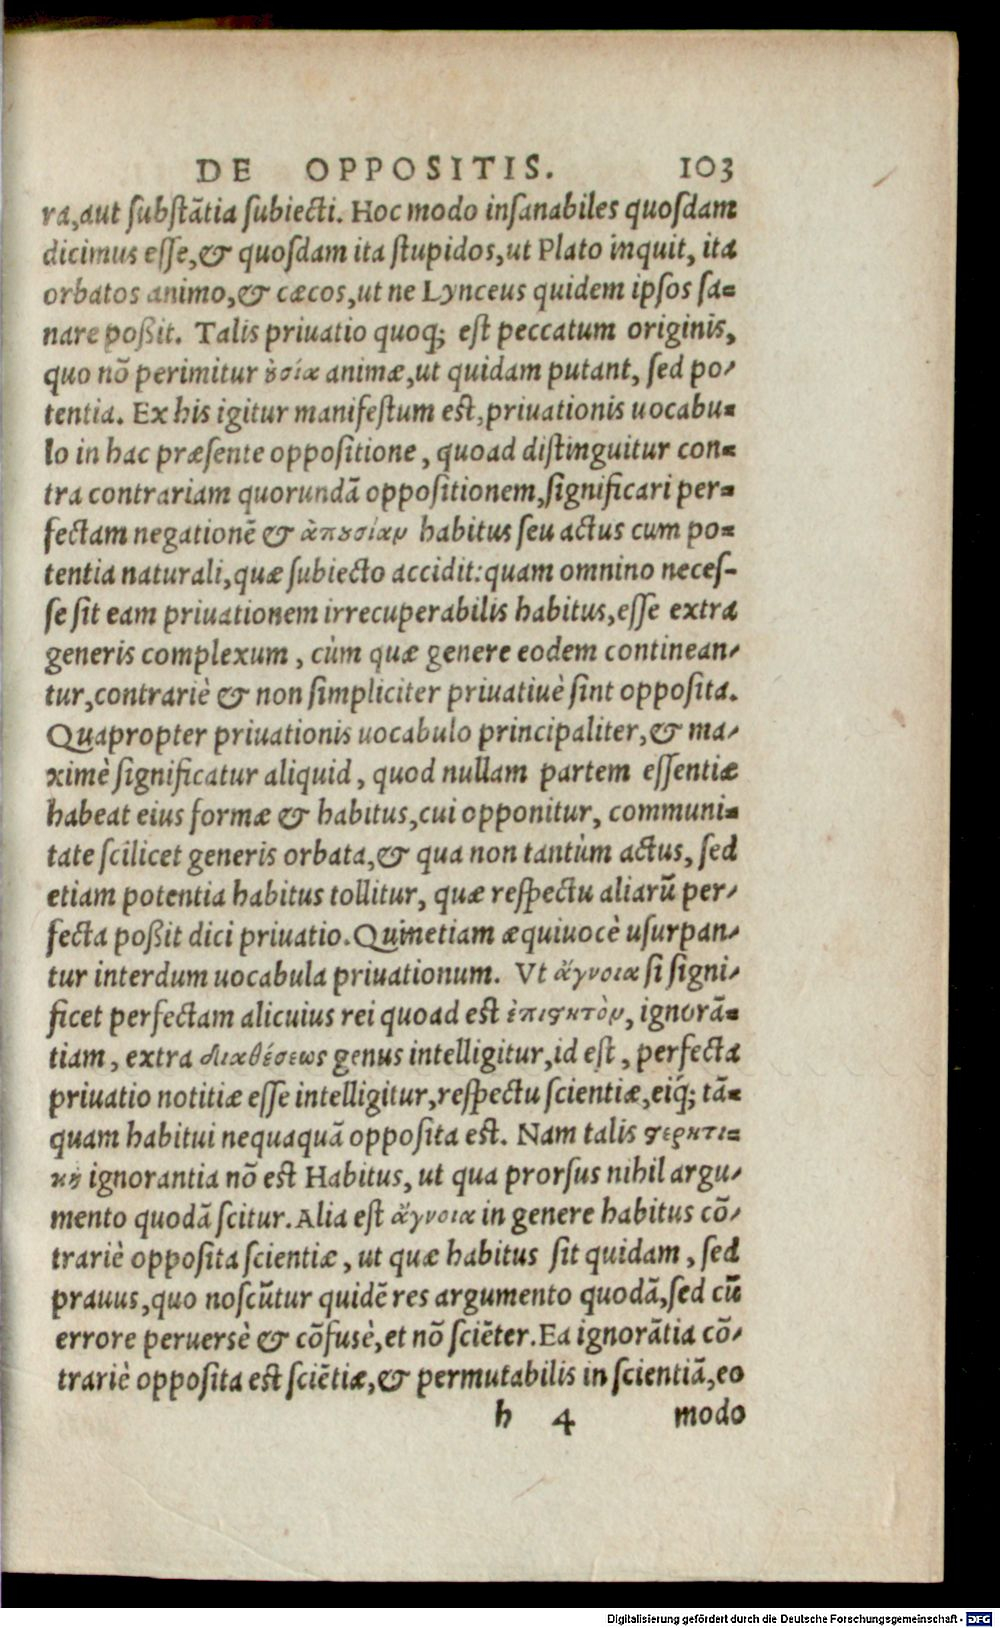 DE OPPOSITIS. 103
ra, aut substātia subiecti. Hoc modo insanabiles quosdam
dicimus esse, & quosdam ita stupidos, ut Plato inquit, ita
orbatos animo, & cæcos, ut ne Lynceus quidem ipsos sa=
nare poßit. Talis priuatio quoq; est peccatum originis,
quo nō perimitur ȣ̓σία animæ, ut quidam putant, sed po-
tentia. Ex his igitur manifestum est, priuationis uocabu=
lo in hac præsente oppositione, quoad distinguitur con=
tra contrariam quorundā oppositionem, significari per=
fectam negationē & ἀπȣσίαν habitus seu actus cum po=
tentia naturali, quæ subiecto accidit: quam omnino neces-
se sit eam priuationem irrecuperabilis habitus, esse extra
generis complexum, cùm quæ genere eodem continean-
tur, contrariè & non simpliciter priuatiuè sint opposita.
Quapropter priuationis uocabulo principaliter, & ma-
ximè significatur aliquid, quod nullam partem essentiæ
habeat eius formæ & habitus, cui opponitur, communi=
tate scilicet generis orbata, & qua non tantùm actus, sed
etiam potentia habitus tollitur, quæ respectu aliarū per-
fecta poßit dici priuatio. Quinetiam æquiuocè usurpan-
tur interdum uocabula priuationum. Vt ἄγνοια si signi-
ficet perfectam alicuius rei quoad est ἐπιϛητὸν, ignorā=
tiam, extra διαθέσεως genus intelligitur, id est, perfecta
priuatio notitiæ esse intelligitur, respectu scientiæ, eiq́; tā=
quam habitui nequaquā opposita est. Nam talis ϛερητι=
κὴ ignorantia nō est Habitus, ut qua prorsus nihil argu-
mento quodā scitur. Alia est ἄγνοια in genere habitus cō-
trariè opposita scientiæ, ut quæ habitus sit quidam, sed
prauus, quo noscūtur quidē res argumento quodā, sed cū
errore peruersè & cōfusè, et nō sciēter. Ea ignorātia cō-
trariè opposita est sciētiæ, & permutabilis in scientiā, eo
h 4 modo
Digitalisierung gefördert durch die Deutsche Forschungsgemeinschaft - DFG